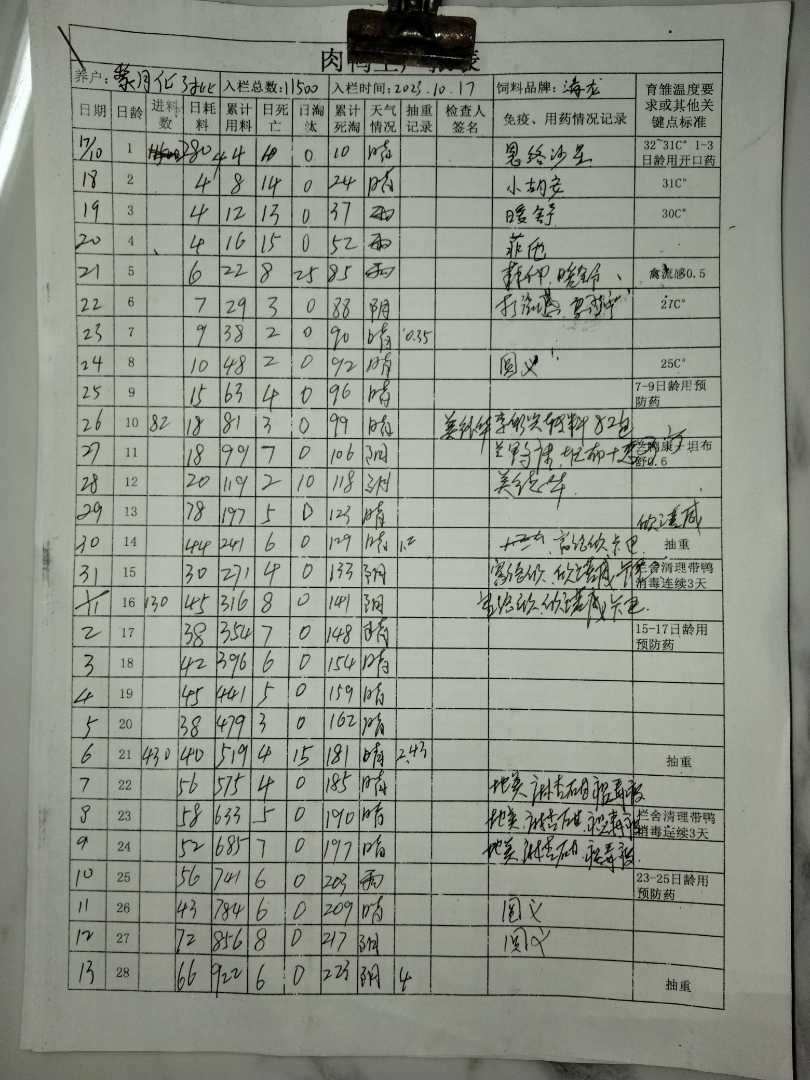 肉鸭生产报表
养户: 入栏总数:11500 入栏时间:2023.10.17 饲料品牌:海龙 育雏温度要求或其他关键点标准
日期 日龄 进料数 日耗料 累计用料 日死亡 日淘汰 累计死淘 天气情况 抽重记录 检查人签名 免疫、用药情况记录
17/10 1 280 4 4 10 0 10 晴 恩络沙星 32~31C° 1-3日龄用开口药
18 2 4 8 14 0 24 晴 小胡安 31C°
19 3 4 12 13 0 37 雨 暖舒 30C°
20 4 4 16 15 0 52 雨
21 5 6 22 8 25 85 雨 禽流感0.5
22 6 7 29 3 0 88 阴 27C°
23 7 9 38 2 0 90 晴 0.35
24 8 10 48 2 0 92 晴 圆义 25C°
25 9 15 63 4 0 96 晴 7-9日龄用预防药
26 10 82 18 81 3 0 99 晴 82包
27 11 18 99 7 0 106 阴 坦布舒0.6
28 12 20 119 2 10 118 阴
29 13 78 197 5 0 123 晴
30 14 44 241 6 0 129 晴 1.2 抽重
31 15 30 271 4 0 133 阴 栏舍清理带鸭消毒连续3天
1/11 16 130 45 316 8 0 141 阴
2 17 38 354 7 0 148 晴 15-17日龄用预防药
3 18 42 396 6 0 154 晴
4 19 45 441 5 0 159 晴
5 20 38 479 3 0 162 晴
6 21 430 40 519 4 15 181 晴 2.43 抽重
7 22 56 575 4 0 185 晴 地美
8 23 58 633 5 0 190 晴 地美 栏舍清理带鸭消毒连续3天
9 24 52 685 7 0 197 晴 地美
10 25 56 741 6 0 203 雨 23-25日龄用预防药
11 26 43 784 6 0 209 晴 圆义
12 27 72 856 8 0 217 阴 圆义
13 28 66 922 6 0 223 阴 4 抽重